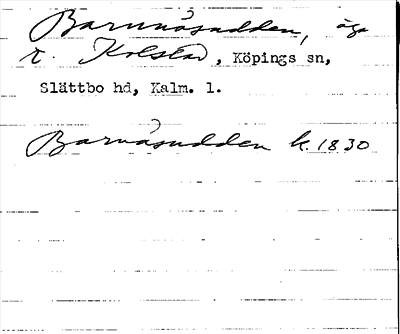 Barnnäsudden, äga
r. Kolstad, Köpings sn,
Slättbo hd, Kalm. l.
Barnåsudden k. 1830